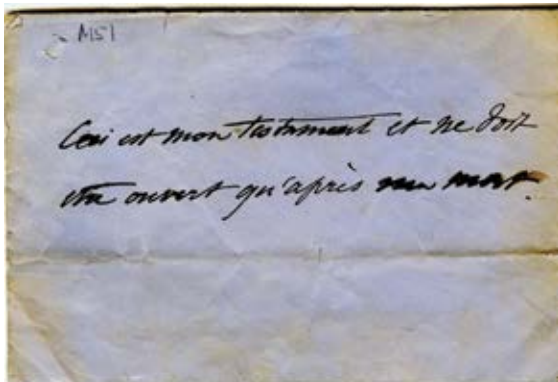 M51
Ceci est mon testament et ne doit
être ouvert qu'après ma mort.